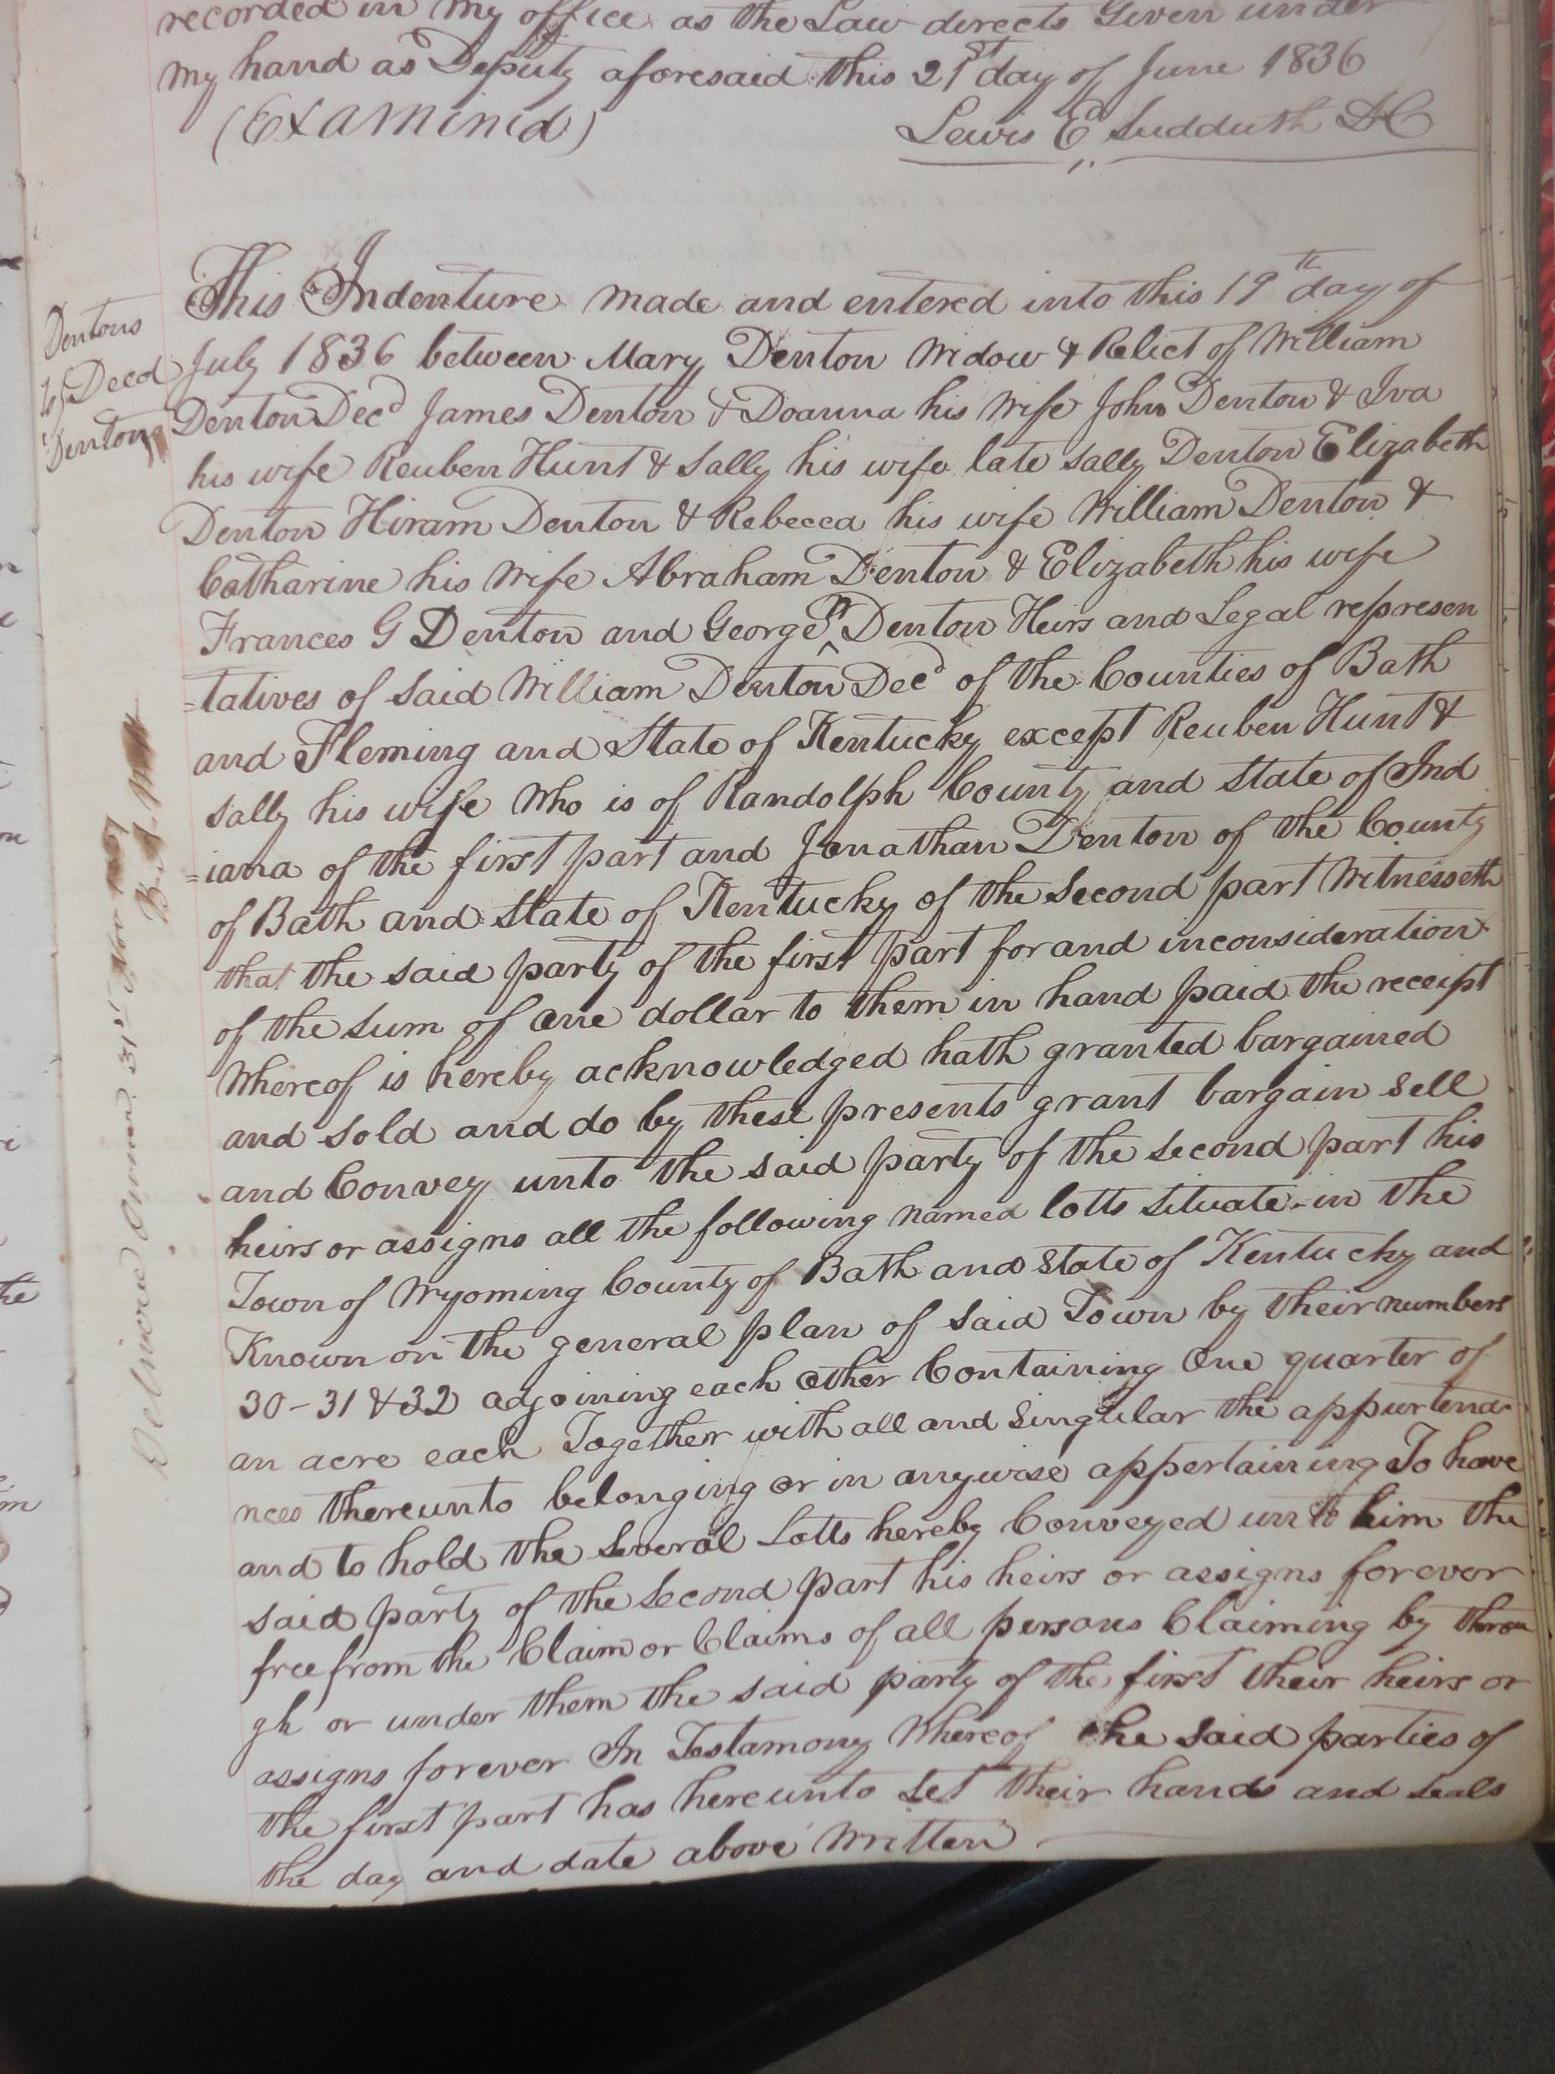 recorded in my office as the Law directs Given under
my hand as Deputy aforesaid this 21st day of June 1836
(Examined) Lewis E Sudduth DC
Dentons
to } Deed
Denton
This Indenture made and entered into this 19th day of
July 1836 between Mary Denton Widow & Relict of William
Denton Decd James Denton & Doanna his wife John Denton & Iva
his wife Reuben Hunt & Sally his wife late Sally Denton Elizabeth
Denton Hiram Denton & Rebecca his wife William Denton &
Catharine his wife Abraham Denton & Elizabeth his wife
Frances G Denton and George Denton Heirs and Legal represen
=tatives of said William Denton Decd of the Counties of Bath
and Fleming and State of Kentucky except Reuben Hunt &
Sally his wife Who is of Randolph County and state of Ind
=iana of the first part and Jonathan Denton of the County
of Bath and State of Kentucky of the Second part Witnesseth
that the said party of the first part for and inconsideration
of the sum of one dollar to them in hand paid the receipt
Whereof is hereby acknowledged hath granted bargained
and sold and do by these presents grant bargain sell
and Convey unto the said party of the second part his
heirs or assigns all the following named lotts situate in the
Town of Wyoming County of Bath and state of Kentucky and
Known on the general plan of said Town by their numbers
30-31 & 32 adjoining each other Containing One quarter of
an acre each Together with all and Singular the appurtena
nces thereunto belonging or in anywise appertaining To have
and to hold the several Lotts hereby Conveyed unto him the
said party of the second part his heirs or assigns forever
free from the Claim or Claims of all persons Claiming by throu
gh or under them the said party of the first their heirs or
assigns forever In Testamony Whereof the said parties of
the first part has hereunto set their hands and seals
the day and date above Written
31st Nov